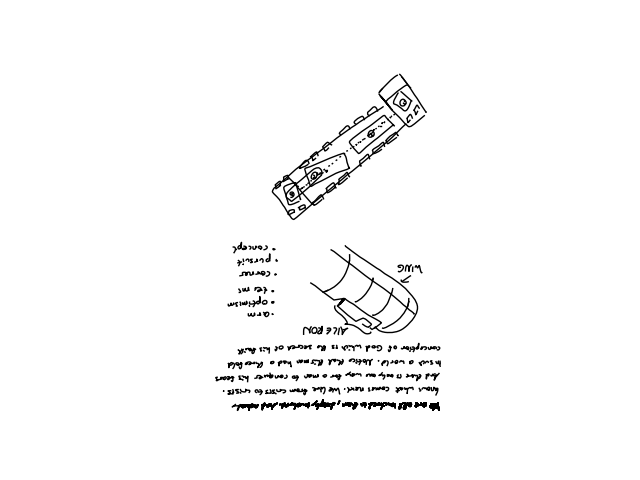 We are all involved in fear, deeply involved. And nobody
knows what comes next. We live from crisis to crisis.
And there is only one way for a man to conquer his fears
in such a world. Notice that this man had a threefold
conception of God which is the secret of his faith
AILERON
WING
• arm
• optimism
• terms
• corner
• pursuit
• concept